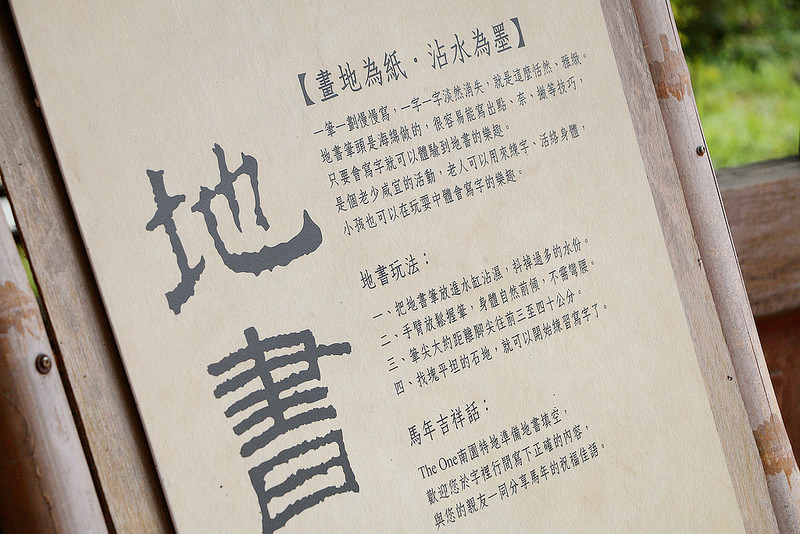 地書
【畫地為紙‧沾水為墨】
一筆一劃慢慢寫，一字一字淡然消失，就是這麼恬然、雅緻。
地書筆頭是海綿做的，很容易能寫出點、奈、撇等技巧，
只要會寫字就可以體驗到地書的樂趣。
是個老少咸宜的活動，老人可以用來練字、活絡身體，
小孩也可以在玩耍中體會寫字的樂趣。
地書玩法：
一、把地書筆放進水缸沾濕，抖掉過多的水份。
二、手臂放鬆握筆，身體自然前傾，不需彎腰。
三、筆尖大約距離腳尖往前三至四十公分。
四、找塊平坦的石地，就可以開始練習寫字了。
馬年吉祥話：
The One南園特地準備地書填空，
歡迎您於字裡行間寫下正確的內容，
與您的親友一同分享馬年的祝福佳語。